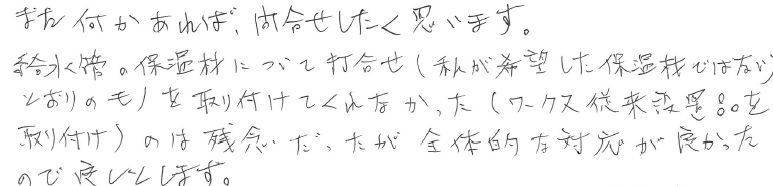 また何かあれば、問合せしたく思います。
給水管の保温材について打合せ(私が希望した保温材ではない)
とおりのモノを取り付けてくれなかった(ワークス従来設置品を
取り付け)のは残念だったが全体的な対応が良かった
ので良しとします。